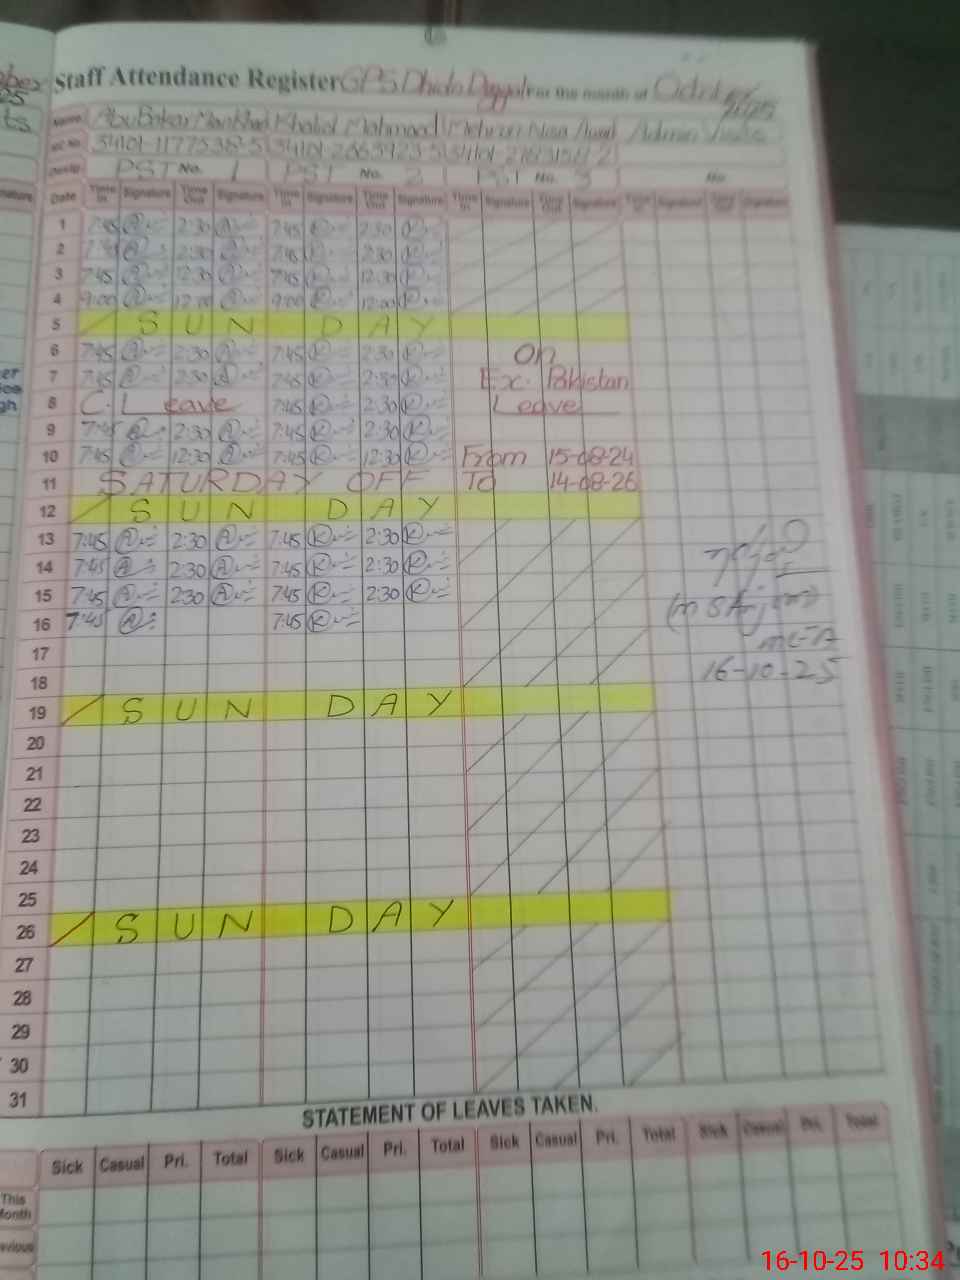 Staff Attendance Register GPS Dhido Duggal For the month of October 2025
Name Abu Bakar Khalid Mahmood Mehrun Nisa Admin Visits
PST No. 1 PST No. 2 PST No. 3 No.
Date Time In Signature Time Out Signature Time In Signature Time Out Signature Time In Signature Time Out Signature Time In Signature Time Out Signature
1 7:45 A 2:30 A 7:45 K 2:30 K
2 7:45 A 2:30 A 7:45 K 2:30 K
3 7:45 A 12:30 A 7:45 K 12:30 K
4 9:00 A 12:00 A 9:00 K 12:00 K
5 S U N D A Y
6 7:45 A 2:30 A 7:45 K 2:30 K On
7 7:45 A 2:30 A 7:45 K 2:30 K Ex. Pakistan
8 C. Leave 7:45 K 2:30 K Leave
9 7:45 A 2:30 A 7:45 K 2:30 K
10 7:45 A 12:30 A 7:45 K 12:30 K From 15-08-24
11 SATURDAY OFF To 14-08-26
12 S U N D A Y
13 7:45 A 2:30 A 7:45 K 2:30 K
14 7:45 A 2:30 A 7:45 K 2:30 K
15 7:45 A 2:30 A 7:45 K 2:30 K
16 7:45 A 7:45 K
17
18 16-10-25
19 S U N D A Y
20
21
22
23
24
25
26 S U N D A Y
27
28
29
30
31
STATEMENT OF LEAVES TAKEN.
Sick Casual Pri. Total Sick Casual Pri. Total Sick Casual Pri. Total Sick Casual Pri. Total
This
Month
16-10-25 10:34